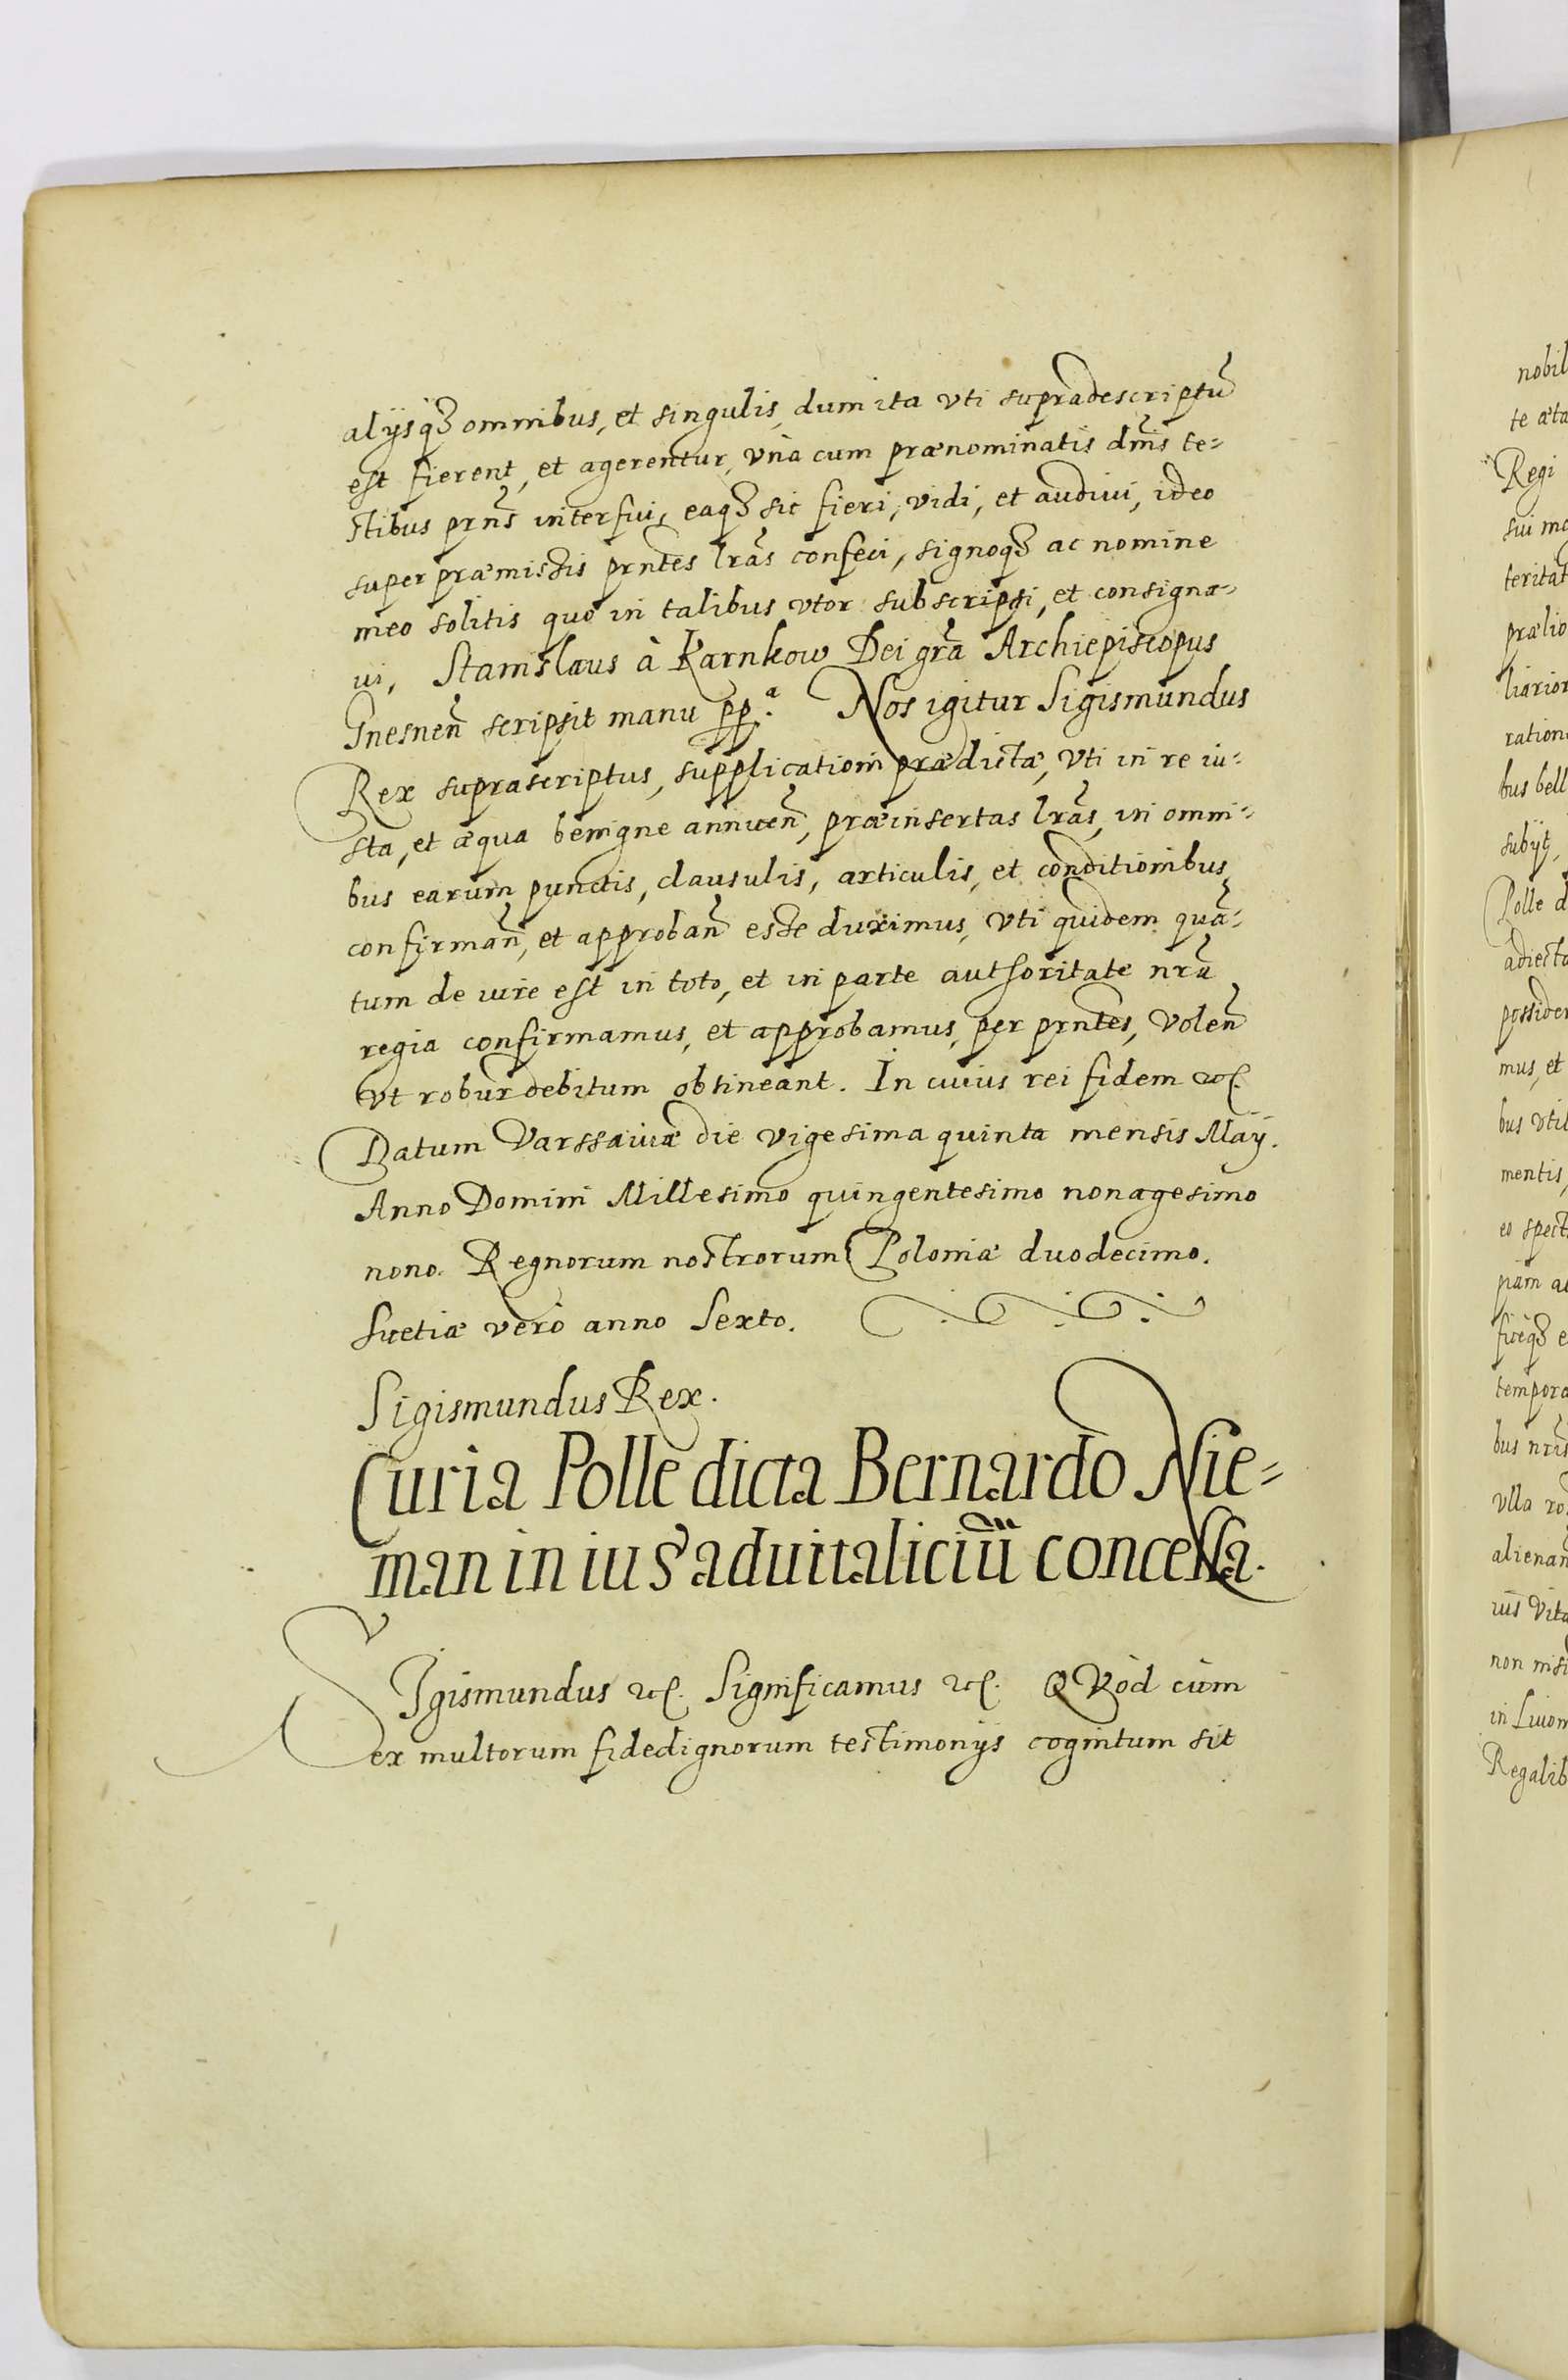 alijsq3 omnibus, et singulis, dum ita vti supradescriptũ
est fierent, et agerentur, vnà cum prænominatis dnĩs te=
stibus prns̃ interfui, eaq3 sic fieri, vidi, et audiui, ideo
super præmissis prntes̃ lrãs confeci, signoq3 ac nomine
meo solitis quo in talibus vtor subscripsi, et consigna=
ui, Stanislaus à Karnkow Dei grã Archiepiscopus
Gnesneñ scripsit manu pp.ᵃ Nos igitur Sigismundus
Rex suprascriptus, supplicationi prædictæ, vti in re iu=
sta, et æqua benigne annueñ, præinsertas lrãs, in omni=
bus earum punctis, clausulis, articulis, et conditionibus
confirmañ, et approbañ esse duximus, vti quidem quã=
tum de iure est in toto, et in parte authoritate nrã
regia confirmamus, et approbamus, per prntes̃, Voleñ
vt robur debitum obtineant. In cuius rei fidem etc.
Datum Varssauiæ die vigesima quinta mensis Maij.
Anno Domini Millesimo quingentesimo nonagesimo
nono. Regnorum nostrorum Poloniæ duodecimo.
Suetiæ verò anno Sexto.
Sigismundus Rex.
Curia Polle dicta Bernardo Nie=
man in ius aduitaliciũ concessa.
SIgismundus etc. Significamus etc. QVòd cùm
ex multorum fidedignorum testimonijs cognitum sit
nobil
te æta
Regi
sui ma
teritat
prælio
liarior
ration
bus bell
subijt,
Polle d
adiecta
possider
mus, et
bus vtil
mentis,
eo spect
piam a
ficeq3 e
tempora
bus nrĩs
vlla ro
alienan
ius Vita
non nisi
in Liuon
Regalib